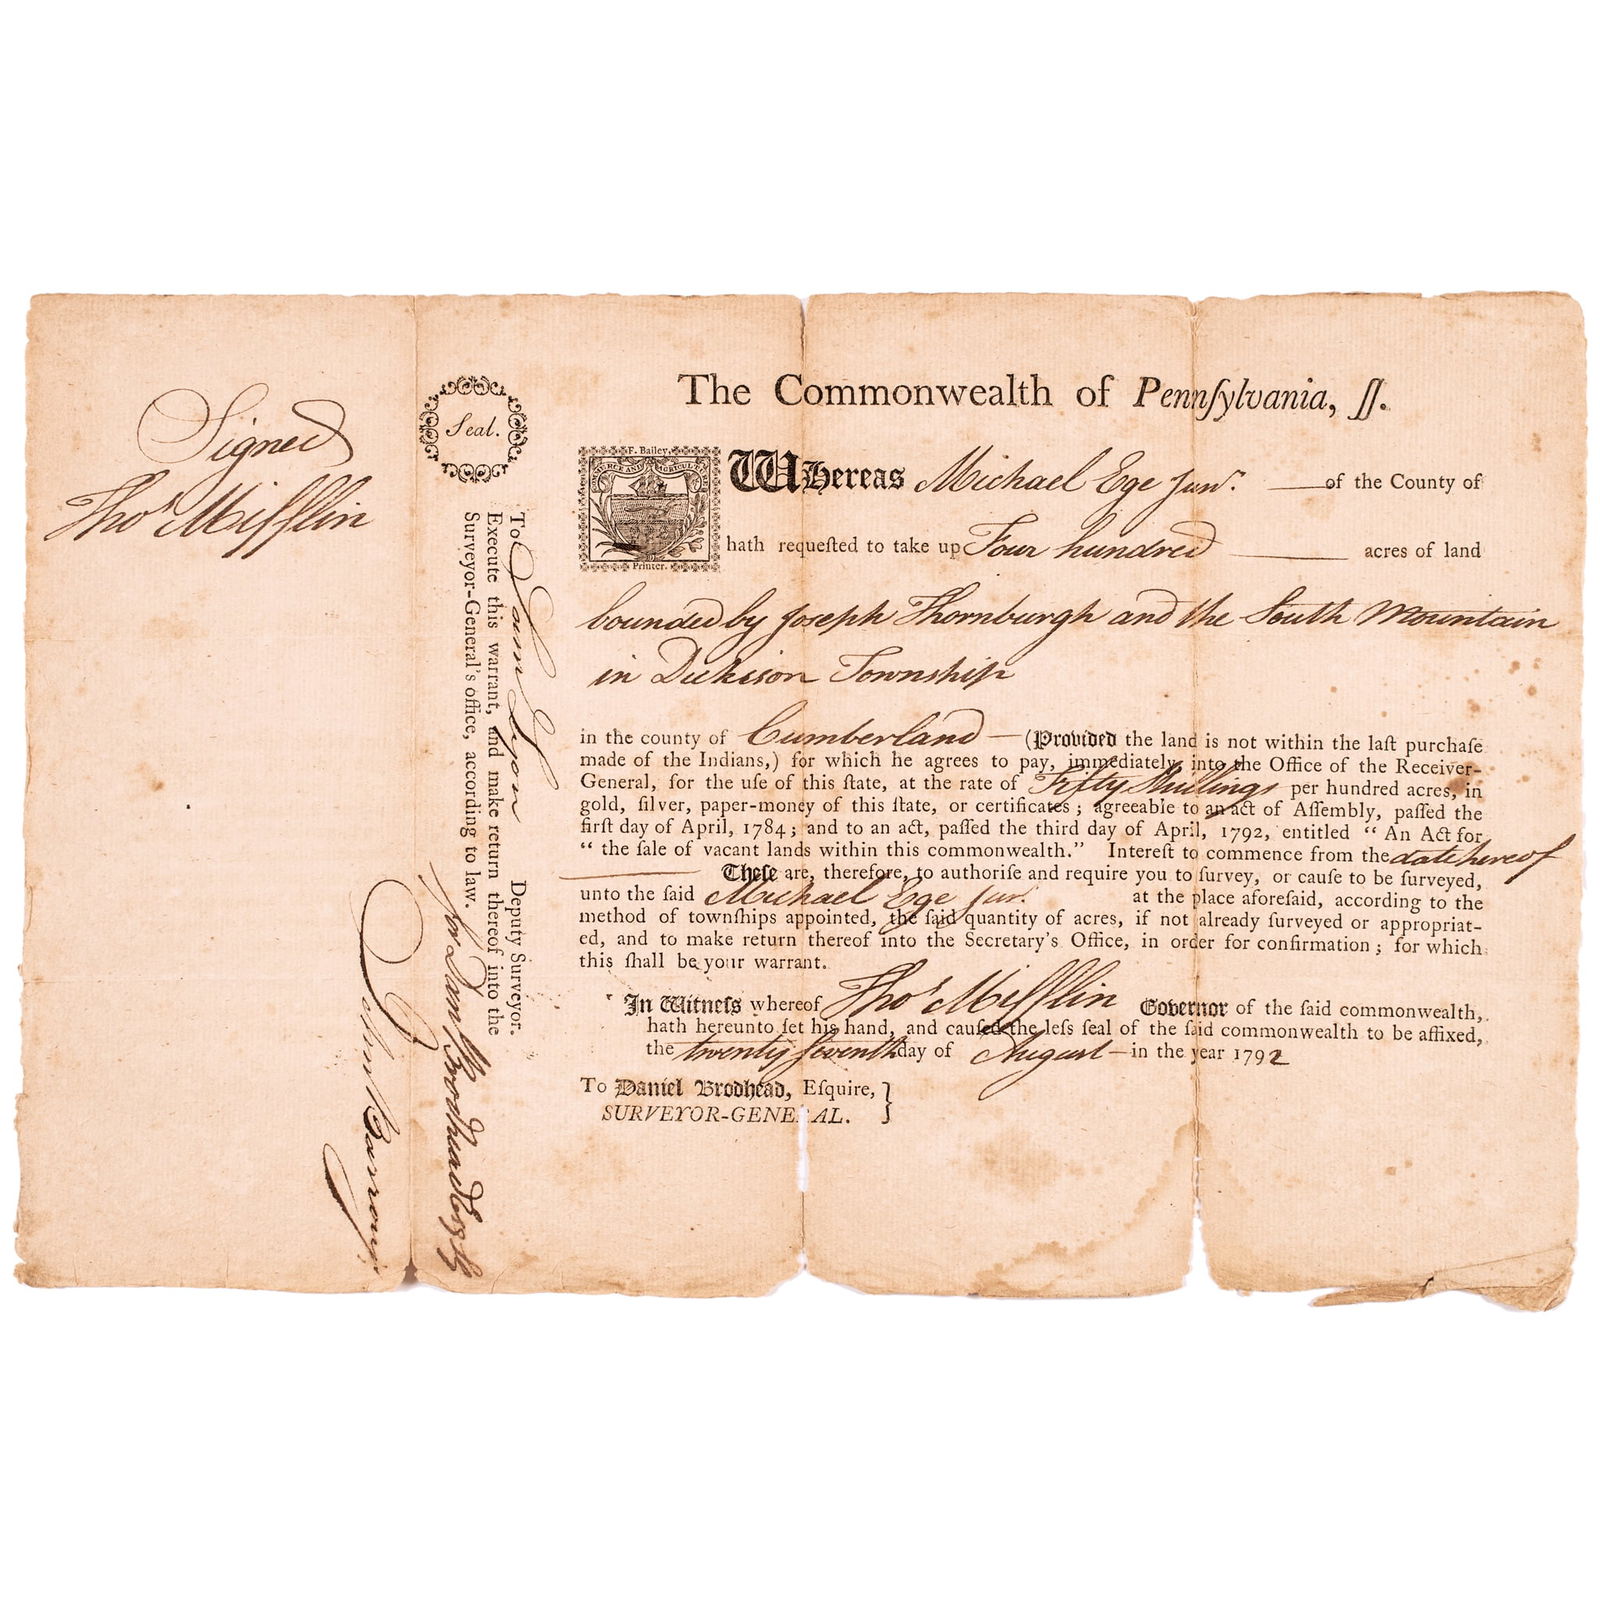 Signed
Thoˢ Mifflin
Seal.
To Sam Lyon Deputy Surveyor.
Execute this warrant, and make return thereof into the
Surveyor-General's office, according to law.
for Danˡ Brodhead Esq SG
The Commonwealth of Pennſylvania, ſſ.
F. Bailey,
Printer.
WHereas Michael Ege Junʳ. of the County of
hath requeſted to take up Four hundred acres of land
bounded by Joseph Thornburgh and the South Mountain
in Dickison Township
in the county of Cumberland — (Provided the land is not within the laſt purchaſe
made of the Indians,) for which he agrees to pay, immediately into the Office of the Receiver-
General, for the uſe of this ſtate, at the rate of Fifty Shillings per hundred acres, in
gold, ſilver, paper-money of this ſtate, or certificates; agreeable to an act of Aſſembly, paſſed the
firſt day of April, 1784; and to an act, paſſed the third day of April, 1792, entitled “ An Act for
“ the ſale of vacant lands within this commonwealth.” Intereſt to commence from the date hereof
Theſe are, therefore, to authoriſe and require you to ſurvey, or cauſe to be ſurveyed,
unto the ſaid Michael Ege Junʳ. at the place aforeſaid, according to the
method of townſhips appointed, the ſaid quantity of acres, if not already ſurveyed or appropriat-
ed, and to make return thereof into the Secretary's Office, in order for confirmation; for which
this ſhall be your warrant.
In Witneſs whereof Thoˢ Mifflin Governor of the ſaid commonwealth,
hath hereunto ſet his hand, and cauſed the leſs ſeal of the ſaid commonwealth to be affixed,
the twenty ſeventh day of August — in the year 1792
To Daniel Brodhead, Eſquire, }
SURVEYOR-GENERAL.